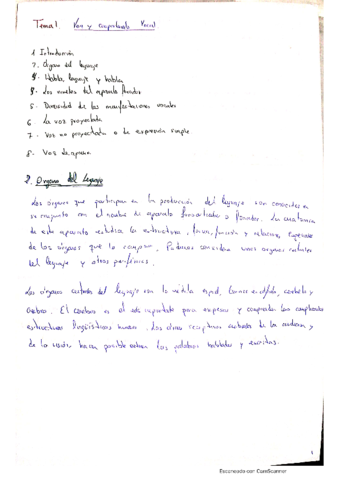 Tema 1. Voz y comportamiento Vocal
1. Introducción
2. Órgano del lenguaje
3. Habla, lenguaje y hablar
4. Los niveles del aparato fonador
5. Diversidad de las manifestaciones vocales
6. La voz proyectada
7. Voz no proyectada o de expresión simple.
8. Voz de apremio.
2. Organo del Lenguaje
Los órganos que participan en la producción del lenguaje son conocidos en
su conjunto con el nombre de aparato fonoarticulador o fonador. La anatomía
de este aparato estudia la estructura, forma, función y relaciones espaciales
de los órganos que lo componen. Podemos considerar unos órganos centrales
del lenguaje y otros periféricos.
Los órganos centrales del lenguaje son la médula espinal, tronco encefálico, cerebelo y
cerebro. El cerebro es el más importante para expresar y comprender las complicadas
estructuras lingüísticas humanas. Las áreas receptivas centrales de la audición y
de la visión hacen posible entender las palabras habladas y escritas.
1
Escaneado con CamScanner